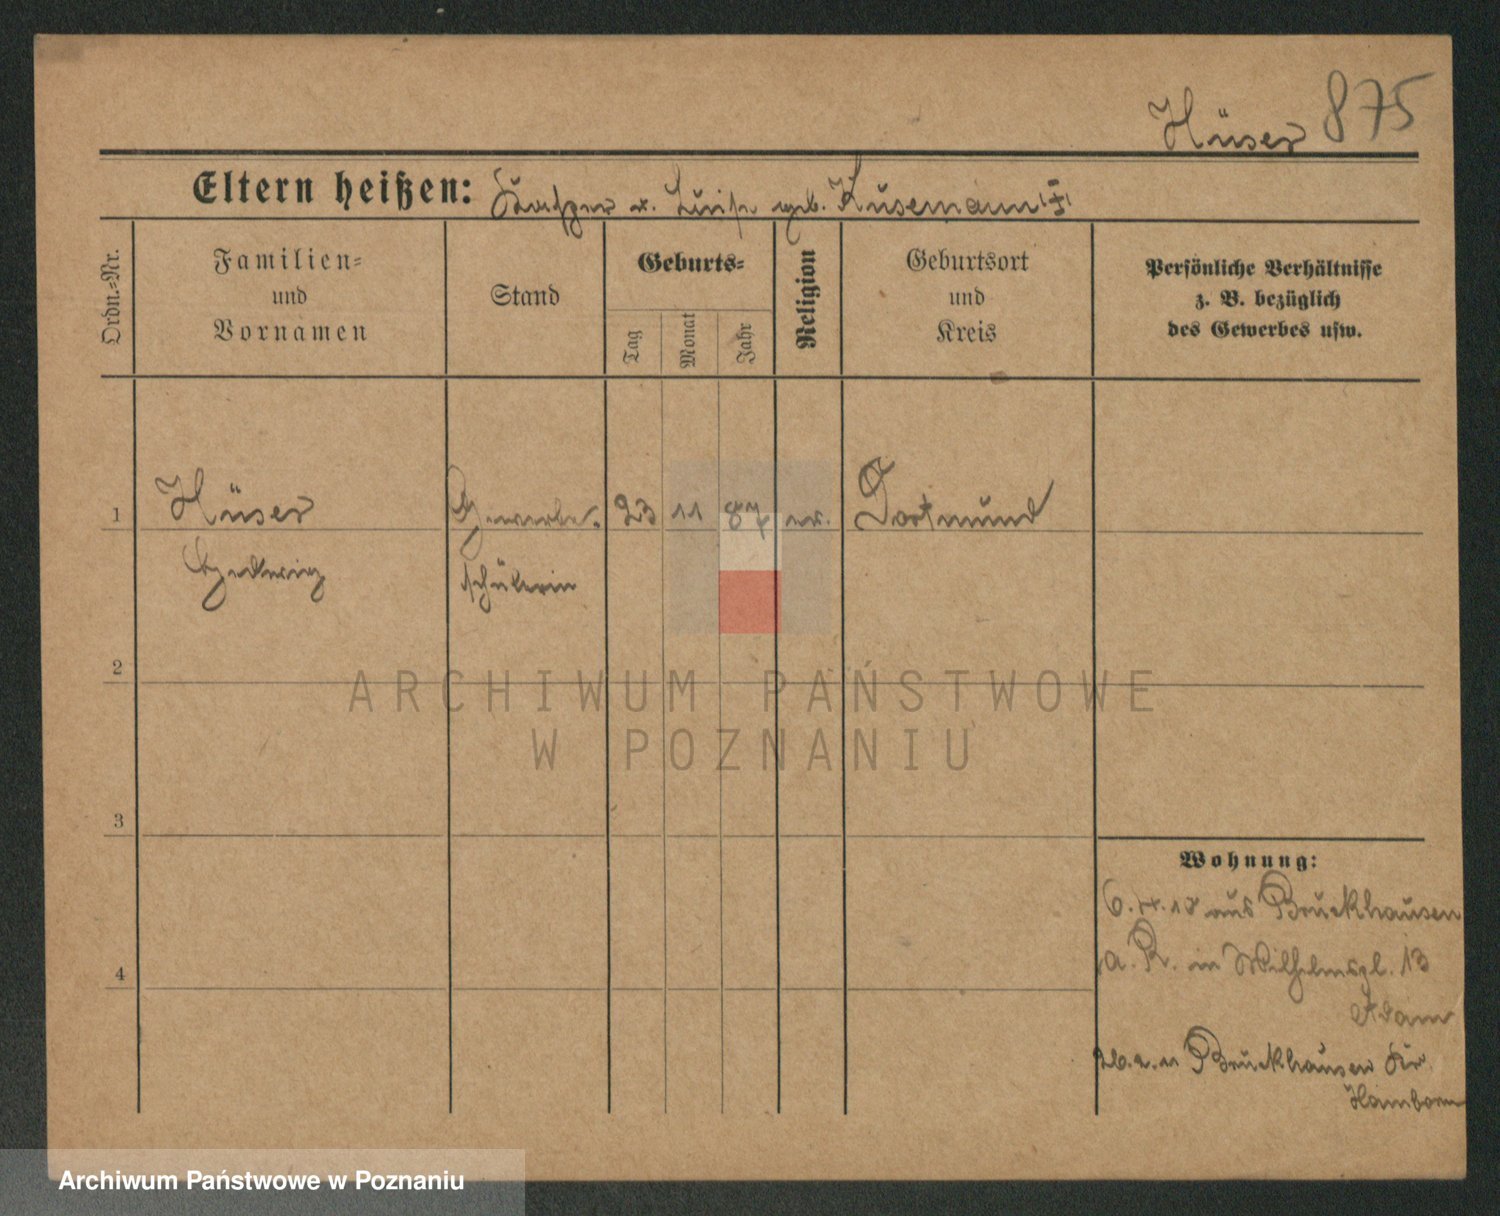 Hüser 875
Eltern heißen: u. Luise geb. Küsemann
Ordn.-Nr.
Familien-
und
Vornamen
Stand
Geburts-
Tag
Monat
Jahr
Religion
Geburtsort
und
Kreis
Persönliche Verhältnisse
z. B. bezüglich
des Gewerbes usw.
1 Hüser Gewerbe- 23 11 87 ev. Dortmund
Hedwig schülerin
2
ARCHIWUM PAŃSTWOWE
W POZNANIU
3
Wohnung:
6. 4. 10 aus Bruckhausen
a. R. in Wilhelmspl. 13
4
Adam
26. 2. 11 Bruckhausen Kr.
Hamborn
Archiwum Państwowe w Poznaniu